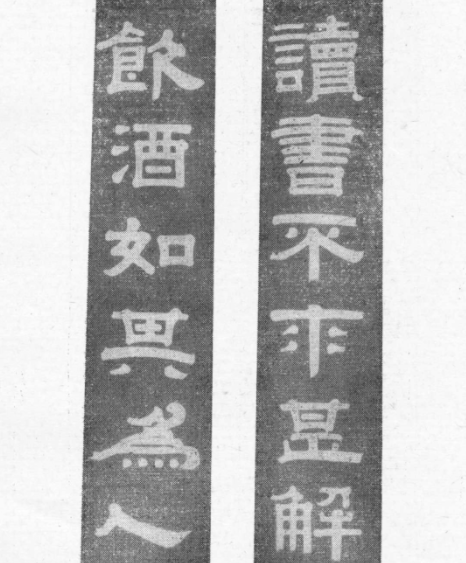 讀書不求甚解
飲酒如其為人